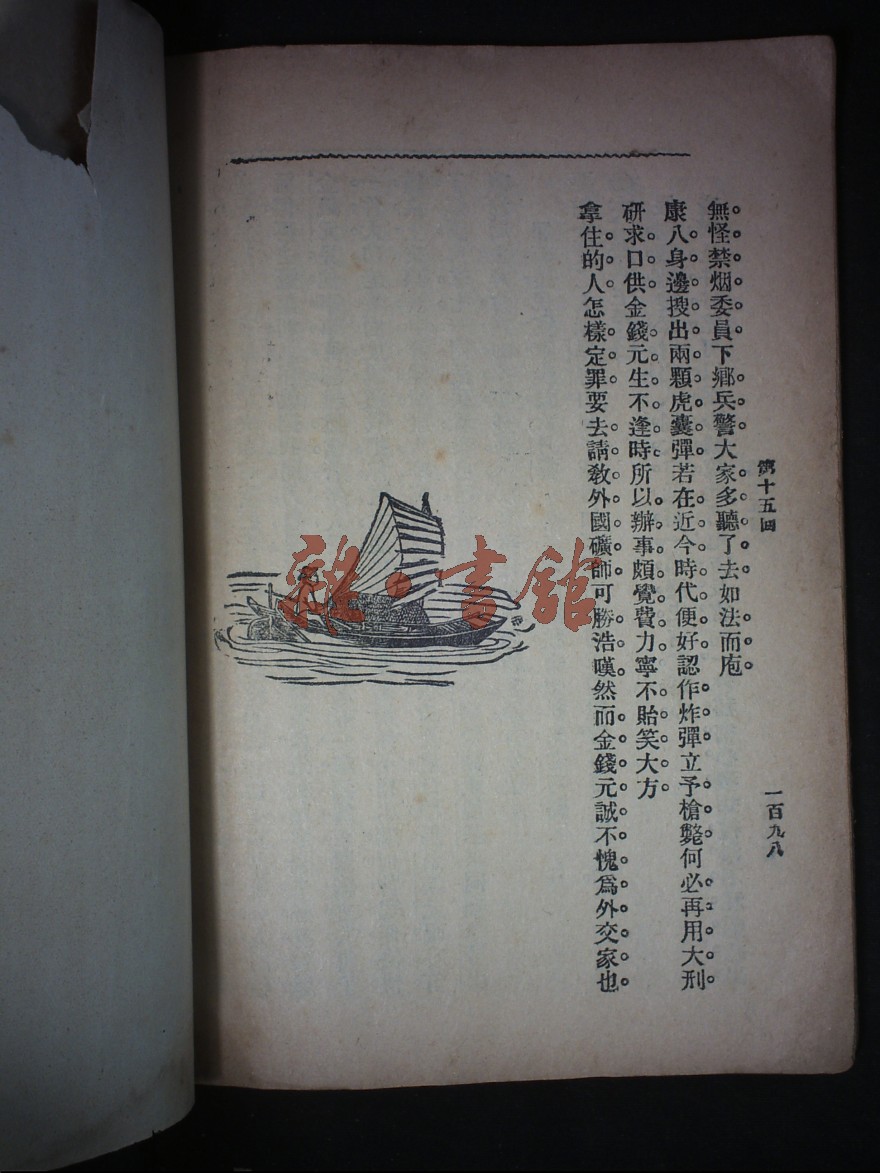 第十五回
一百九八
無怪禁烟委員下鄉。兵警大家多聽了去如法而庖。
康八身邊搜出兩顆虎囊彈若在近今時代便好認作炸彈立予槍斃何必再用大刑
研求口供金錢元生不逢時所以辦事頗覺費力寧不貽笑大方
拿住的人怎樣定罪要去請敎外國礦師可勝浩嘆然而金錢元誠不愧爲外交家也
雜·書館